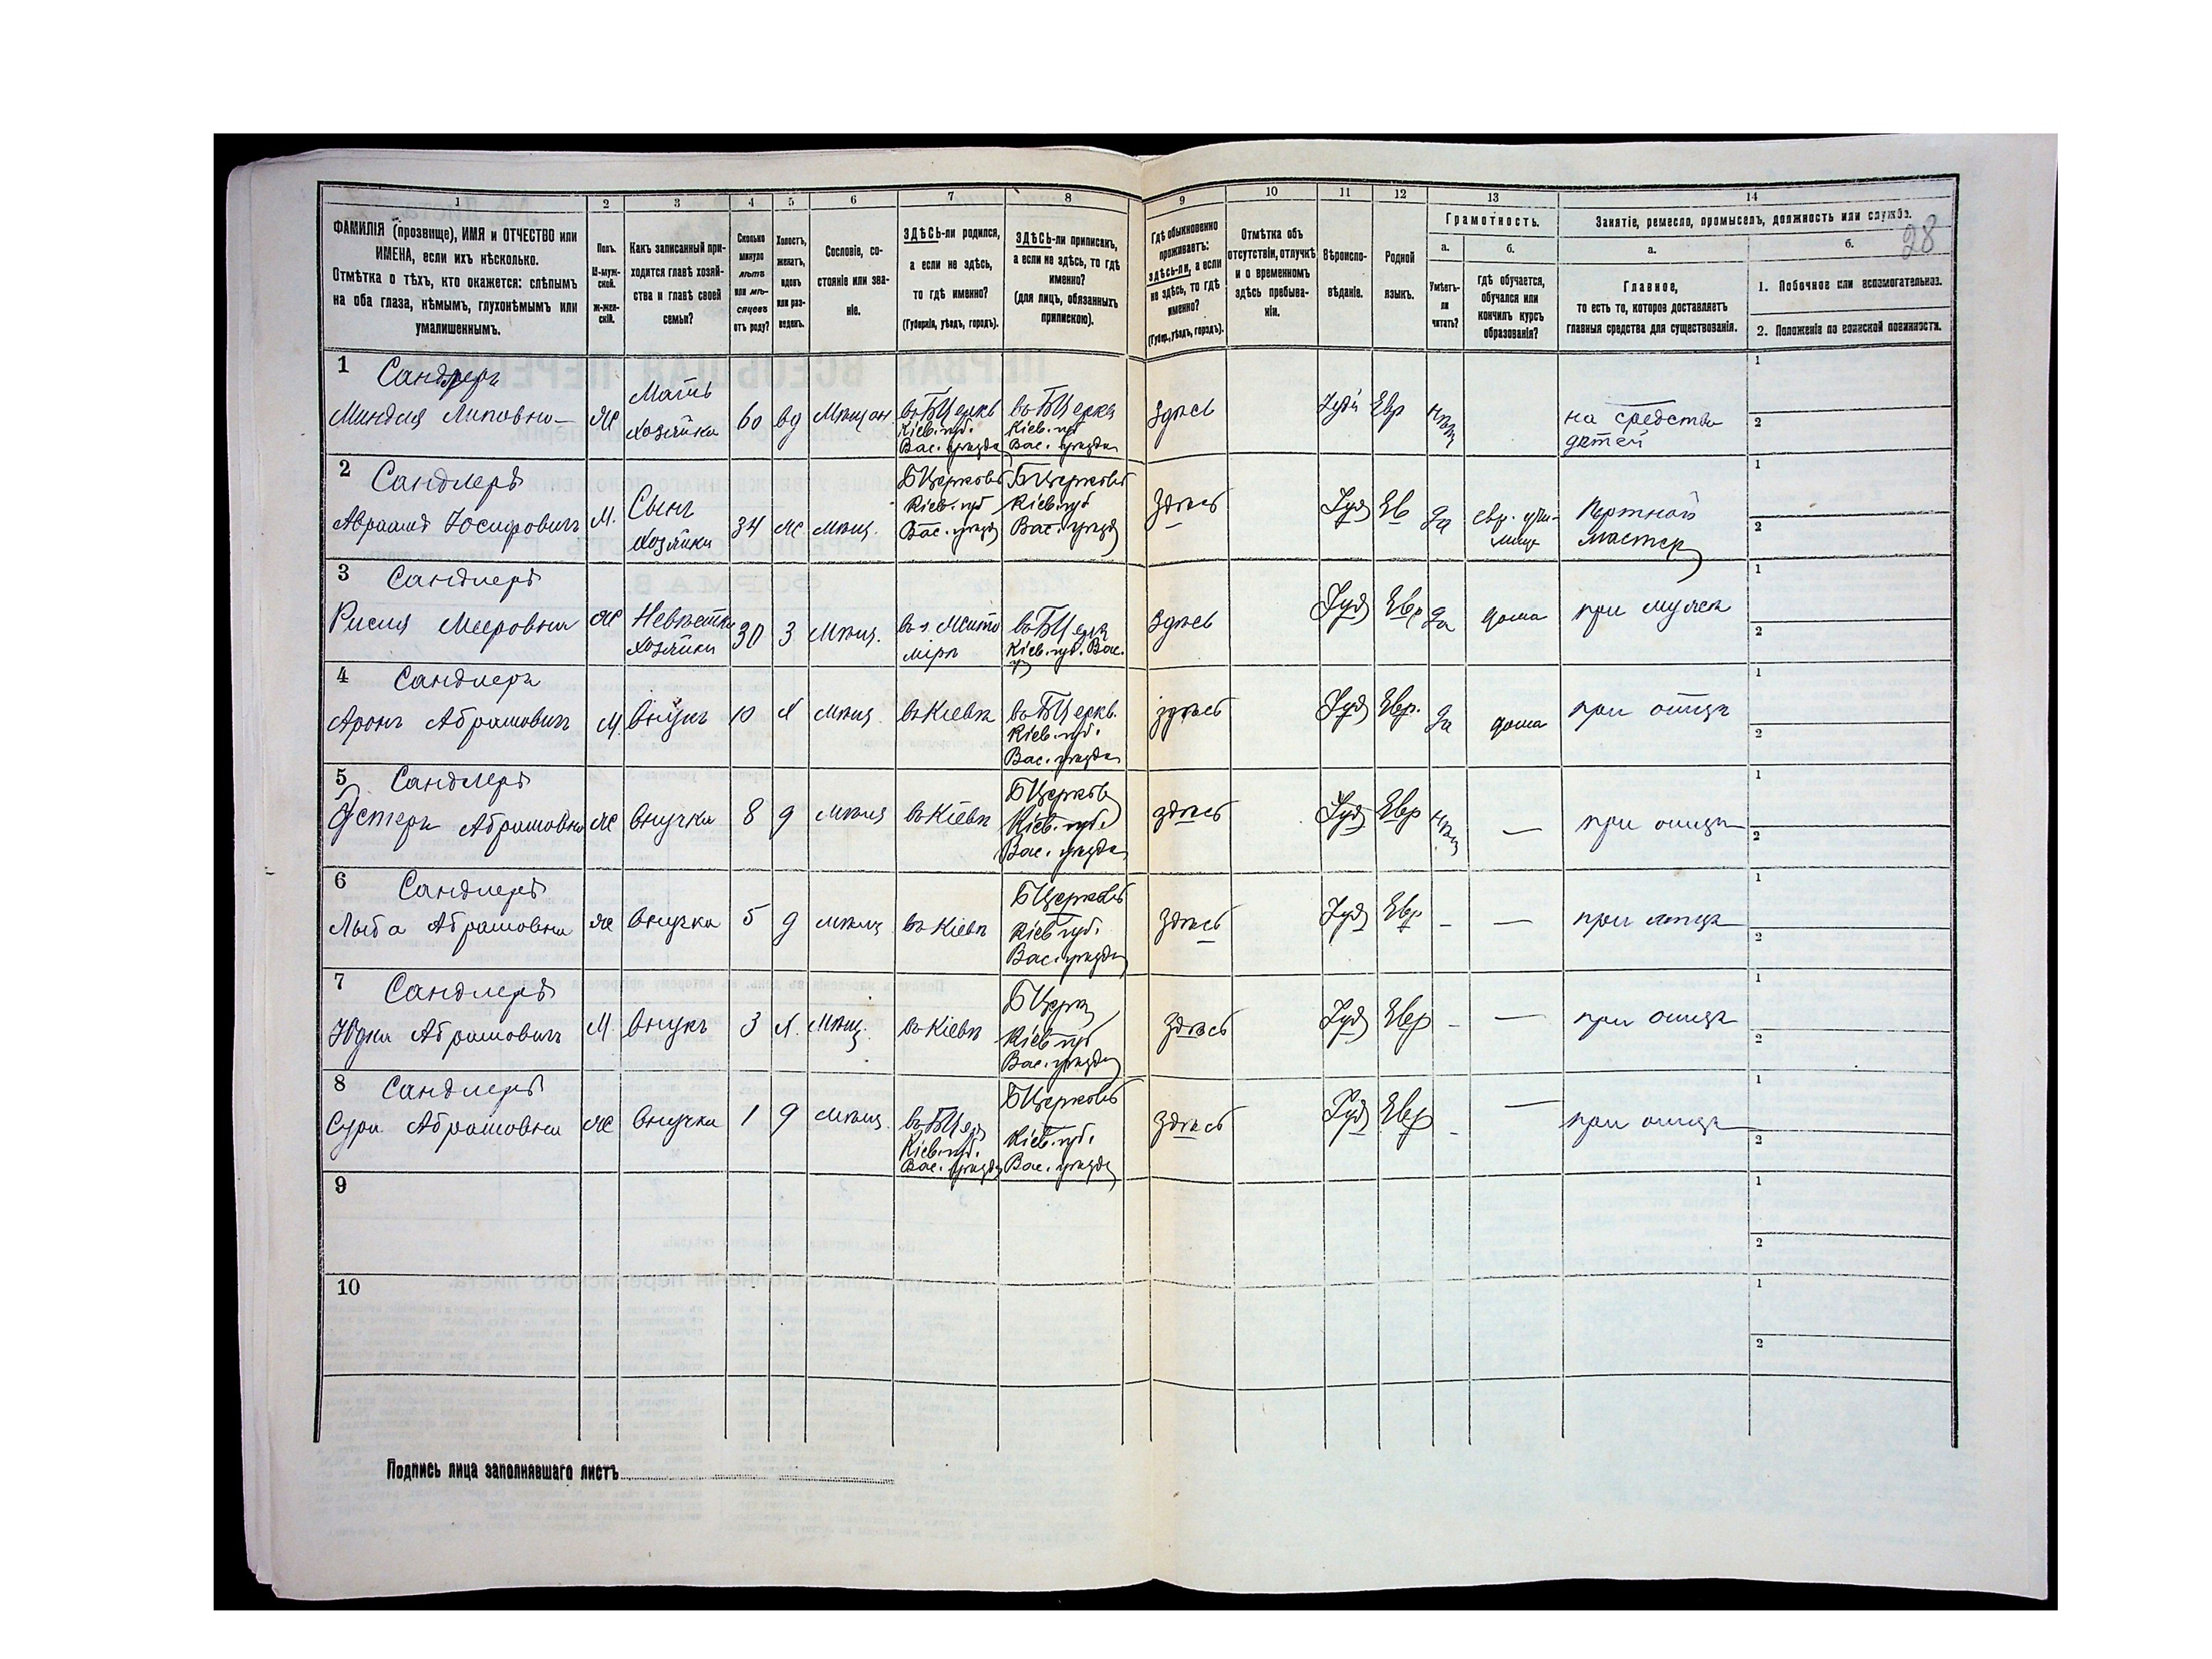 1
2
3
4
5
6
7
8
9
10
11
12
13
14
ФАМИЛІЯ (прозвище), ИМЯ и ОТЧЕСТВО или
ИМЕНА, если ихъ нѣсколько.
Отмѣтка о тѣхъ, кто окажется: слѣпымъ
на оба глаза, нѣмымъ, глухонѣмымъ или
умалишеннымъ.
Полъ.
М-муж-
ской.
ж-жен-
скій.
Какъ записанный при-
ходится главѣ хозяй-
ства и главѣ своей
семьи?
Сколько
минуло
лѣтъ
или мѣ-
сяцевъ
отъ роду?
Холостъ,
женатъ,
вдовъ
или раз-
веденъ.
Сословіе, со-
стояніе или зва-
ніе.
ЗДѢСЬ-ли родился,
а если не здѣсь,
то гдѣ именно?
(Губернія, уѣздъ, городъ).
ЗДѢСЬ-ли приписанъ,
а если не здѣсь, то гдѣ
именно?
(для лицъ, обязанныхъ
припискою).
Гдѣ обыкновенно
проживаетъ:
здѣсь-ли, а если
не здѣсь, то гдѣ
именно?
(Губер., уѣздъ, городъ).
Отмѣтка объ
отсутствіи, отлучкѣ
и о временномъ
здѣсь пребыва-
ніи.
Вѣроиспо-
вѣданіе.
Родной
языкъ.
Грамотность.
а.
Умѣетъ-
ли
читать?
б.
Гдѣ обучается,
обучался или
кончилъ курсъ
образованія?
Занятіе, ремесло, промыселъ, должность или служба.
28
а.
Главное,
то есть то, которое доставляетъ
главныя средства для существованія.
б.
1. Побочное или вспомогательное.
2. Положеніе по воинской повинности.
1 Сандлеръ
Миндля Липовна ж Мать хозяйка 60 вд Мѣщан въ БЦеркв Кіев. губ. Вас. уѣзда въ БЦеркв Кіев. губ Вас. уѣзда здѣсь Іуд Евр нѣтъ на средства дѣтей 1 2
2 Сандлеръ
Абрамъ Іосифовичъ М. Сынъ хозяйки 34 ж. мѣщ. БЦерковъ Кіев. губ Вас. уѣзд БЦерковъ Кіев. губ Вас. уѣзд здѣсь Іуд Ев да евр. учи- лище Портной мастер 1 2
3 Сандлеръ
Рися Мееровна ж Невѣстка хозяйки 30 З Мѣщ. въ г. Жито міръ въ БЦерк Кіев. губ. Вас. у здѣсь Іуд Евр да дома при мужѣ 1 2
4 Сандлеръ
Аронъ Абрамовичъ М. внукъ 10 х мѣщ. въ Кіевѣ въ БЦеркв. Кіев. губ. Вас. уѣзда здѣсь Іуд Евр. да дома при отцѣ 1 2
5 Сандлеръ
Эстеръ Абрамовна ж внучка 8 д мѣщ въ Кіевѣ БЦерковъ Кіев. губ. Вас. уѣзда здѣсь Іуд Евр нѣтъ — при отцѣ 1 2
6 Сандлеръ
Лыба Абрамовна ж внучка 5 д мѣщ въ Кіевѣ БЦерковъ Кіев губ. Вас. уѣзда здѣсь Іуд Евр - — при отцѣ 1 2
7 Сандлеръ
Юдка Абрамовичъ М. внукъ 3 х. мѣщ. въ Кіевѣ БЦерк Кіев губ Вас. уѣзда здѣсь Іуд Евр - — при отцѣ 1 2
8 Сандлеръ
Сура Абрамовна ж внучка 1 д мѣщ. въ БЦер Кіев. губ. Вас. уѣзда БЦерковъ Кіев. губ. Вас. уѣзда здѣсь Іуд Евр - — при отцѣ 1 2
9 1 2
10 1 2
Подпись лица заполнявшаго листъ